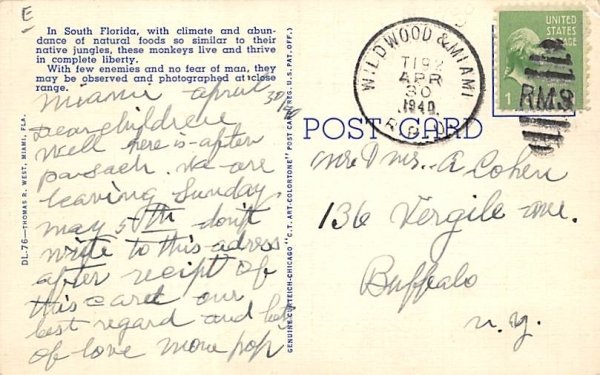 E
In South Florida, with climate and abun-
dance of natural foods so similar to their
native jungles, these monkeys live and thrive
in complete liberty.
With few enemies and no fear of man, they
may be observed and photographed at close
range.
Miami April 30/40
Dear children
Well here is after
Passach. We are
leaving Sunday
May 5th don't
write to this adress
after recipt of
this card our
best regard and
of love Mom Pop
DL-76—THOMAS R. WEST, MIAMI, FLA.
GENUINE CURTEICH-CHICAGO "C.T. ART-COLORTONE" POST CARD (REG. U.S. PAT. OFF.)
POST CARD
WILDWOOD & MIAMI
T192
APR
30
1940
R.P.O.
UNITED
STATES
1
RMS
Mr & Mrs. A Cohen
136 Vergile Ave.
Buffalo
N.Y.